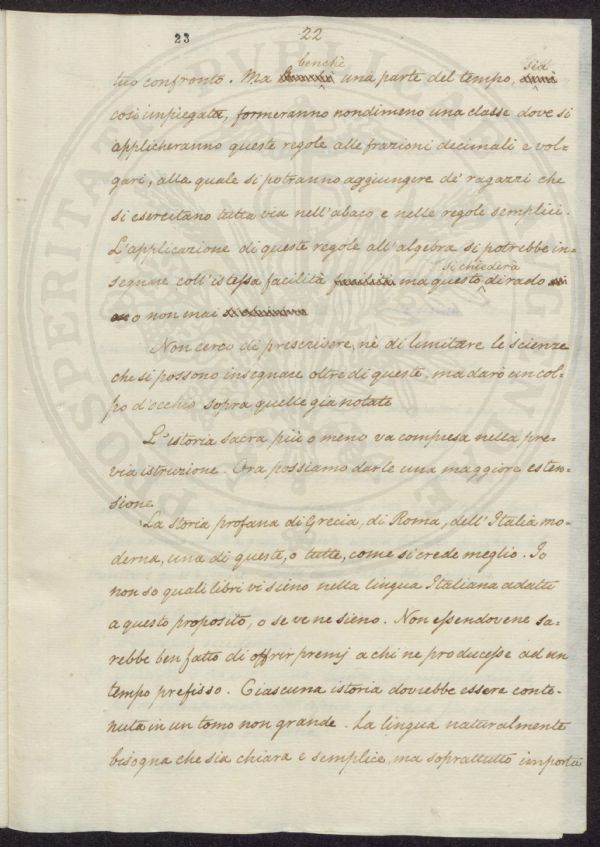 23
22
benchè
sia
tuo confronto. Ma una parte del tempo,
così impiegata, formeranno nondimeno una classe dove si
applicheranno queste regole alle frazioni decimali e vol-
gari, alla quale si potranno aggiungere de' ragazzi che
si esercitano tutta via nell'abaco e nelle regole semplici.
L'applicazione di queste regole all'algebra si potrebbe in-
si chiederà
segnare coll'istessa facilità facilità ma questo di rado
o non mai
Non cerco di prescrivere, nè di limitare le scienze
che si possono insegnare oltre di queste, ma darò un col-
po d'occhio sopra quelle gia notate
L'istoria sacra più o meno va compresa nella pre-
via istruzione. Ora possiamo darle una maggiore esten-
sione.
La storia profana di Grecia, di Roma, dell'Italia mo-
derna, una di queste, o tutte, come si crede meglio. Io
non so quali libri vi sieno nella lingua Italiana adatti
a questo proposito, o se ve ne sieno. Non essendovene sa-
rebbe ben fatto di offrir premj a chi ne producesse ad un
tempo prefisso. Ciascuna istoria dovrebbe essere conte-
nuta in un tomo non grande. La lingua naturalmente
bisogna che sia chiara e semplice, ma soprattutto importa
PROSPERITATI PUBLICAE AUGENDAE